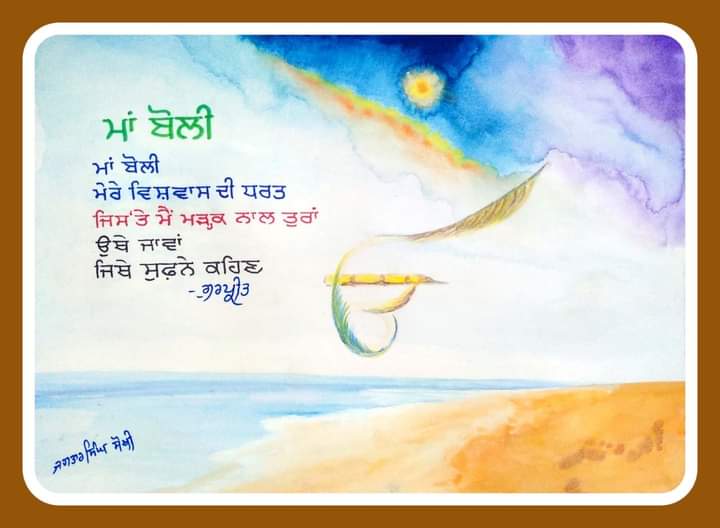 ਮਾਂ ਬੋਲੀ
ਮਾਂ ਬੋਲੀ
ਮੇਰੇ ਵਿਸ਼ਵਾਸ ਦੀ ਧਰਤ
ਜਿਸ'ਤੇ ਮੈਂ ਮੜ੍ਹਕ ਨਾਲ ਤੁਰਾਂ
ਉਥੇ ਜਾਵਾਂ
ਜਿਥੇ ਸੁਫ਼ਨੇ ਕਹਿਣ
--ਗੁਰਪ੍ਰੀਤ
ਜਗਤਾਰਸਿੰਘ ਸੋਖੀ